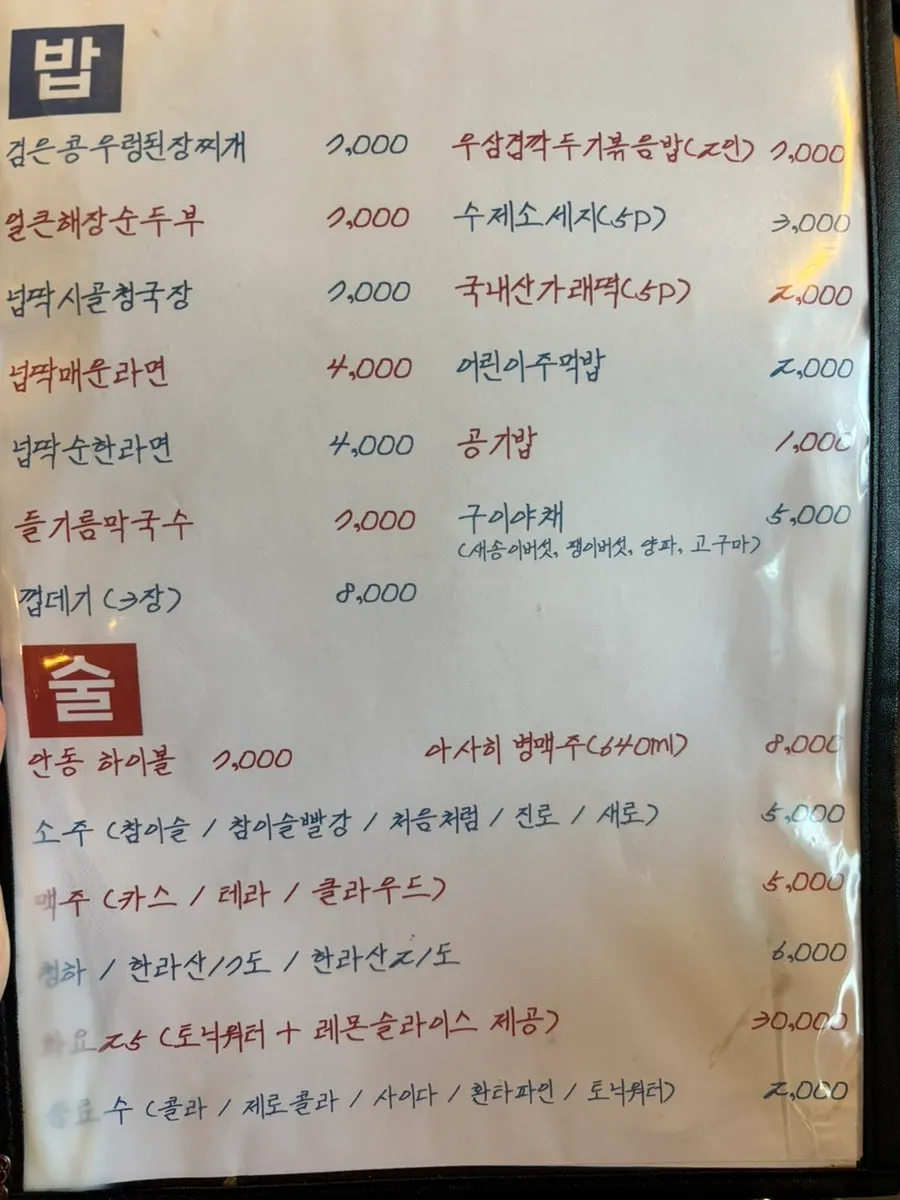 밥
검은콩우렁된장찌개 7,000
우삼겹깍두기볶음밥(2인) 7,000
얼큰해장순두부 7,000
수제소세지(5P) 3,000
넙딱시골청국장 7,000
국내산가래떡(5P) 2,000
넙딱매운라면 4,000
어린이주먹밥 2,000
넙딱순한라면 4,000
공기밥 1,000
들기름막국수 7,000
구이야채 5,000
(새송이버섯, 팽이버섯, 양파, 고구마)
껍데기 (3장) 8,000
술
안동 하이볼 7,000
아사히 병맥주(640ml) 8,000
소주 (참이슬 / 참이슬빨강 / 처음처럼 / 진로 / 새로) 5,000
맥주 (카스 / 테라 / 클라우드) 5,000
청하 / 한라산17도 / 한라산21도 6,000
화요25 (토닉워터 + 레몬슬라이스 제공) 30,000
음료수 (콜라 / 제로콜라 / 사이다 / 환타파인 / 토닉워터) 2,000